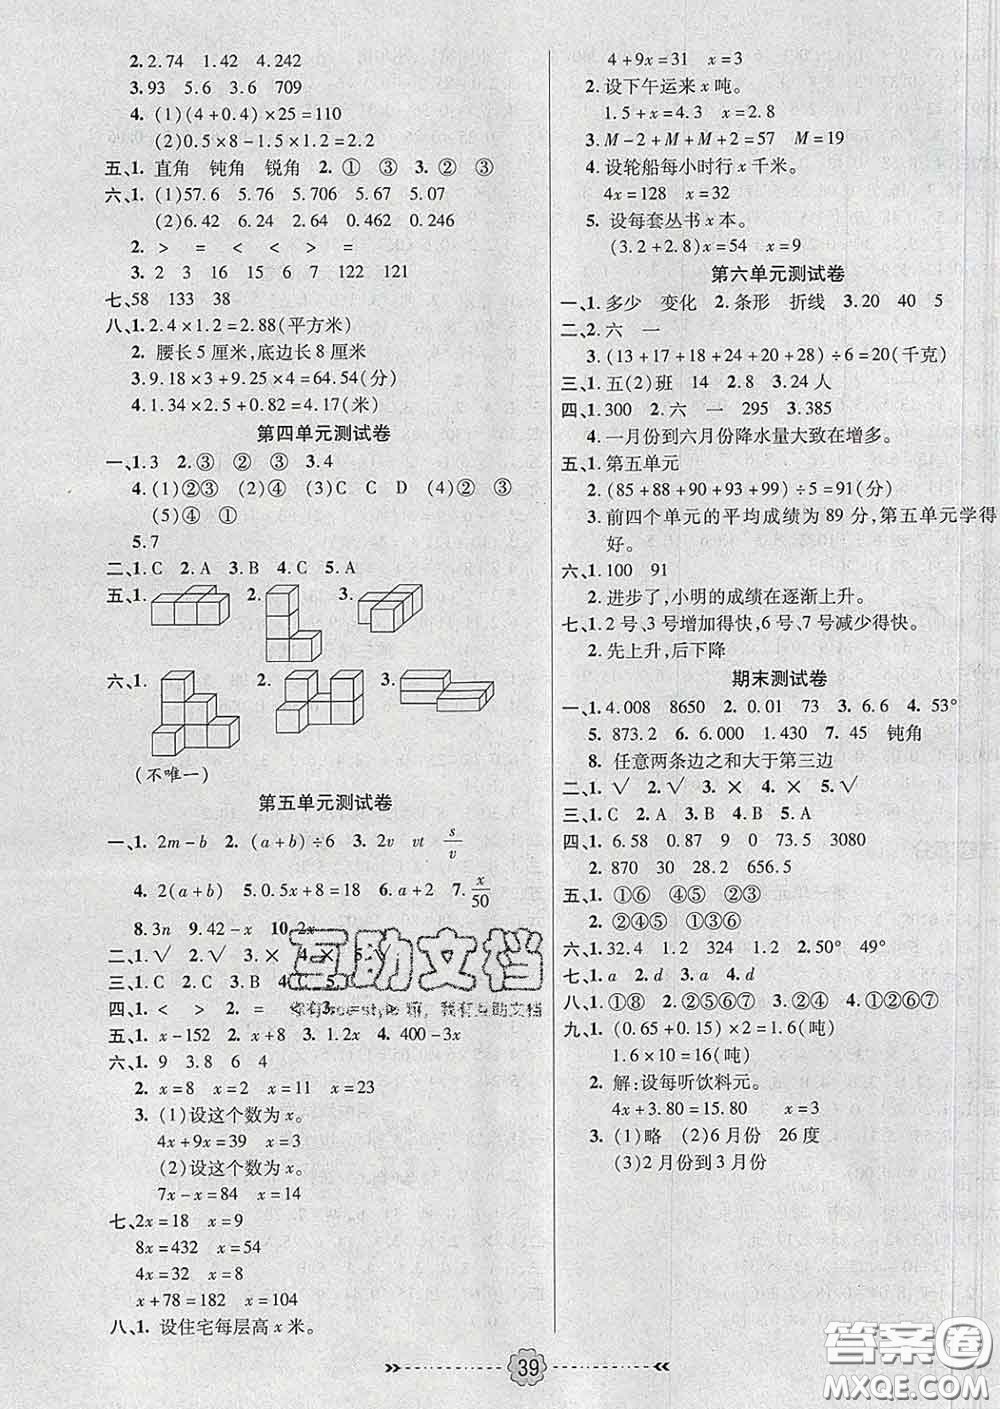 2. 2.74 1.42 4.242
3. 93 5.6 3.6 709
4. (1)(4+0.4)×25=110
(2)0.5×8-1.5×1.2=2.2
五、1. 直角 钝角 锐角 2. ① ③ 3. ② ③
六、1. (1)57.6 5.76 5.706 5.67 5.07
(2)6.42 6.24 2.64 0.462 0.246
2. > = < < > =
3. 2 3 16 15 6 7 122 121
七、58 133 38
八、1. 2.4×1.2=2.88(平方米)
2. 腰长5厘米,底边长8厘米
3. 9.18×3+9.25×4=64.54(分)
4. 1.34×2.5+0.82=4.17(米)
第四单元测试卷
一、1. 3 2. ③ ② ③ 3. 4
4. (1)②③ (2)④ (3)C C D (4)② ③
(5)④ ①
5. 7
二、1. C 2. A 3. B 4. C 5. A
五、1. 2. 3.
六、1. 2. 3.
(不唯一)
第五单元测试卷
一、1. 2m-b 2. (a+b)÷6 3. 2v vt s/v
4. 2(a+b) 5. 0.5x+8=18 6. a+2 7. x/50
8. 3n 9. 42-x 10. 2x
二、1. √ 2. √ 3. × 4. × 5.
三、1. C 2. C 3. B 4. C 5.
四、1. < > 2. = 3. =
五、1. x-152 2. x+8 3. 1.2x 4. 400-3x
六、1. 9 3.8 6 4
2. x=8 x=2 x=11 x=23
3. (1)设这个数为x。
4x+9x=39 x=3
(2)设这个数为x。
7x-x=84 x=14
七、2x=18 x=9
8x=432 x=54
4x=32 x=8
x+78=182 x=104
八、1. 设住宅每层高x米。
4+9x=31 x=3
2. 设下午运来x吨。
1.5+x=4.3 x=2.8
3. M-2+M+M+2=57 M=19
4. 设轮船每小时行x千米。
4x=128 x=32
5. 设每套丛书x本。
(3.2+2.8)x=54 x=9
第六单元测试卷
一、1. 多少 变化 2. 条形 折线 3. 20 40 5
二、2. 六 一
3. (13+17+18+24+20+28)÷6=20(千克)
三、1. 五(2)班 14 2. 8 3. 24人
四、1. 300 2. 六 一 295 3. 385
4. 一月份到六月份降水量大致在增多。
五、1. 第五单元
2. (85+88+90+93+99)÷5=91(分)
3. 前四个单元的平均成绩为89分,第五单元学得
好。
六、1. 100 91
2. 进步了,小明的成绩在逐渐上升。
七、1. 2号、3号增加得快,6号、7号减少得快。
2. 先上升,后下降
期末测试卷
一、1. 4.008 8650 2. 0.01 73 3. 6.6 4. 53°
5. 873.2 6. 6.000 1.430 7. 45 钝角
8. 任意两条边之和大于第三边
二、1. √ 2. √ 3. × 4. × 5. √
三、1. C 2. A 3. B 4. B 5. A
四、1. 6.58 0.87 9 0 73.5 3080
2. 870 30 28.2 656.5
五、1. ①⑥ ④⑤ ②③
2. ②④⑤ ①③⑥
六、1. 32.4 1.2 324 1.2 2. 50° 49°
七、1. a 2. d 3. a d
八、1. ①⑧ 2. ②⑤⑥⑦ 3. ④ 4. ①②⑥⑦
九、1. (0.65+0.15)×2=1.6(吨)
1.6×10=16(吨)
2. 解:设每听饮料元。
4x+3.80=15.80 x=3
3. (1)略 (2)6月份 26度
(3)2月份到3月份
互助文档
你有free-style嘛,我有互助文档
39
答案圈
MXQE.COM